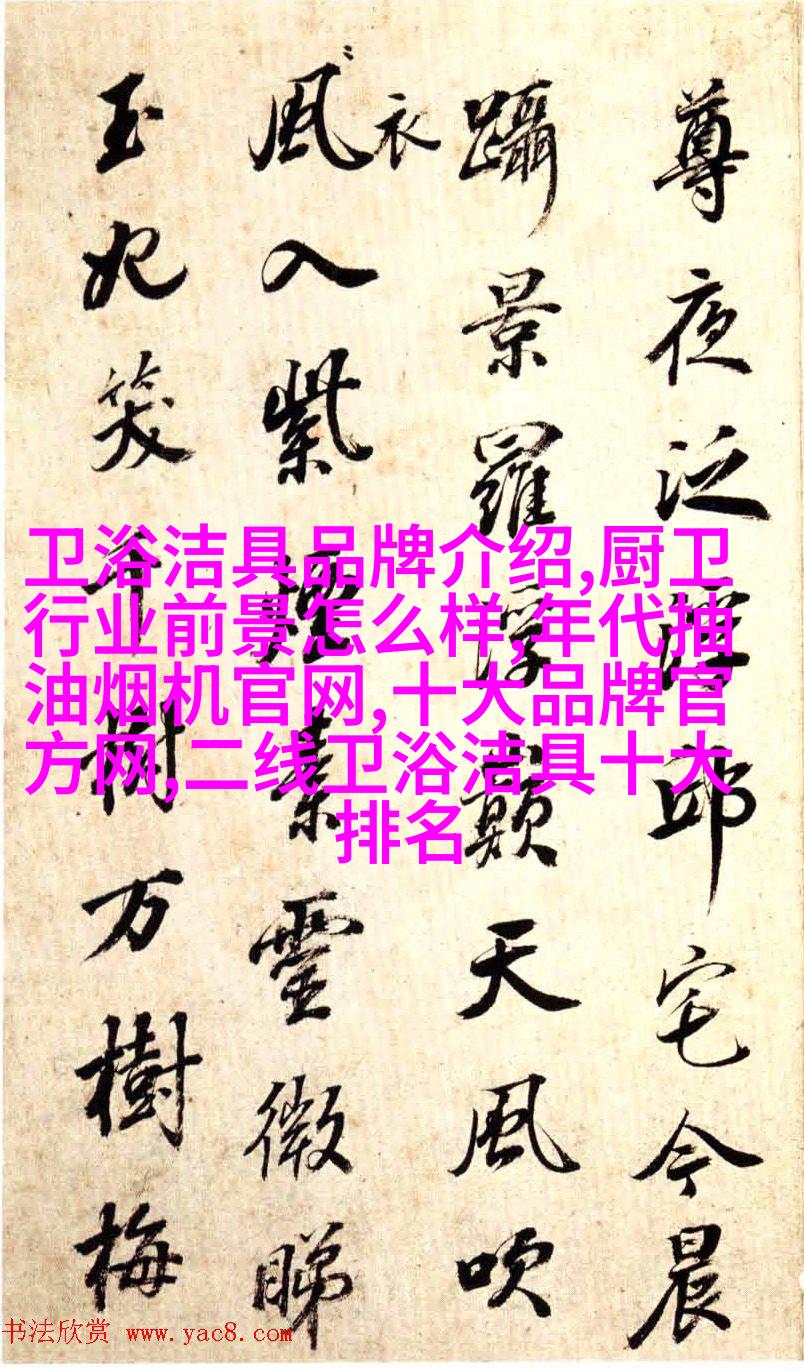 尊夜泛浮邱宅今晨
躡景羅浮顛天風吹
風衣入紫煙素靈微睇
玉妃笑千樹万樹梅
卫浴洁具品牌介绍,厨卫
行业前景怎么样,年代抽
油烟机官网,十大品牌官
方网,二线卫浴洁具十大
排名
书法欣赏 www.yac8.com